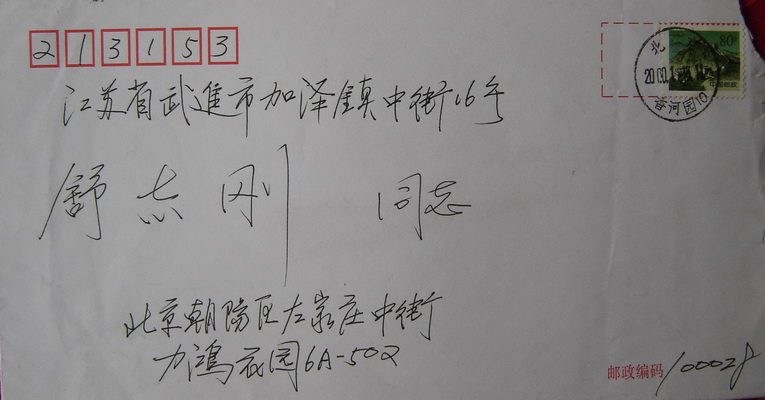 213153
80
北
2000.1
香河园10
江苏省武進市加泽镇中街16号
舒志刚 同志
北京朝陽区左家庄中街
力鴻花园6A-502
邮政编码 100028